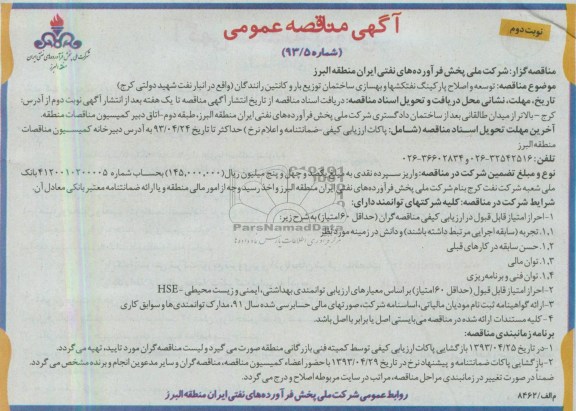 آگهی مناقصه عمومی
(شماره ۹۳/۵)
نوبت دوم
شرکت ملی پخش فرآورده‌های نفتی ایران
منطقه البرز
مناقصه‌گزار: شرکت ملی پخش فرآورده‌های نفتی ایران منطقه البرز
موضوع مناقصه: توسعه و اصلاح پارکینگ نفتکشها و بهسازی ساختمان توزیع بار و کانتین رانندگان (واقع در انبار نفت شهید دولتی کرج)
تاریخ، مهلت، نشانی محل دریافت و تحویل اسناد مناقصه: دریافت اسناد مناقصه از تاریخ انتشار آگهی مناقصه تا یک هفته بعد از انتشار آگهی نوبت دوم از آدرس:
کرج – بالاتر از میدان طالقانی بعد از ساختمان دادگستری شرکت ملی پخش فرآورده‌های نفتی ایران منطقه البرز، طبقه دوم-اتاق دبیر کمیسیون مناقصات منطقه.
آخرین مهلت تحویل اسناد مناقصه (شامل: پاکات ارزیابی کیفی -ضمانتنامه و اعلام نرخ) حداکثر تا تاریخ ۹۳/۰۴/۲۴ به آدرس دبیرخانه کمیسیون مناقصات
منطقه البرز
تلفن: ۳۲۵۴۲۵۱۶-۰۲۶ و ۳۶۶۰۲۸۳۴-۰۲۶
نوع و مبلغ تضمین شرکت در مناقصه: واریز سپرده نقدی به مبلغ یکصد و چهل و پنج میلیون ریال (۱۴۵,۰۰۰,۰۰۰) بحساب شماره ۴۱۲۰۰۱۰۲۰۰۰۵ بانک
ملی شعبه شرکت نفت کرج بنام شرکت ملی پخش فرآورده‌های نفتی ایران منطقه البرز و اخذ رسید وجه از امور مالی منطقه و یا ارائه ضمانتنامه معتبر بانکی معادل آن
شرایط شرکت در مناقصه: کلیه شرکتهای توانمند دارای:
۱-احراز امتیاز قابل قبول در ارزیابی کیفی مناقصه‌گران (حداقل ۶۰ امتیاز) به شرح زیر:
۱،۱. تجربه (سابقه اجرایی مرتبط داشته باشند) و دانش در زمینه مورد نظر
۱،۲. حسن سابقه در کارهای قبلی
۱،۳. توان مالی
۱،۴. توان فنی و برنامه‌ریزی
۲-احراز امتیاز قابل قبول (حداقل ۶۰ امتیاز) بر اساس معیارهای ارزیابی توانمندی بهداشتی، ایمنی و زیست محیطی -HSE
۳-ارائه گواهینامه ثبت نام مودیان مالیاتی، اساسنامه شرکت، صورتهای مالی حسابرسی شده سال ۹۱، مدارک توانمندی‌ها و سوابق کاری
۴-کلیه مستندات ارائه شده در مناقصه می‌بایستی اصل یا برابر با اصل باشد.
برنامه زمانبندی مناقصه:
۱-در تاریخ ۱۳۹۳/۰۴/۲۵ بازگشایی پاکات ارزیابی کیفی توسط کمیته فنی بازرگانی منطقه صورت می گیرد و لیست مناقصه گران مورد تایید، تهیه می گردد.
۲-بازگشایی پاکات ضمانتنامه و پیشنهاد نرخ در تاریخ ۱۳۹۳/۰۴/۲۹ با حضور اعضاء کمیسیون مناقصه، مناقصه گران و سایر مدعوین انجام و برنده مشخص می گردد.
ضمناً در صورت تغییر در زمانبندی مراحل مناقصه، مراتب در سایت مربوطه اصلاح و درج می گردد.
م الف/۸۴۶۲
روابط عمومی شرکت ملی پخش فرآورده‌های نفتی ایران منطقه البرز
ParsNamadData